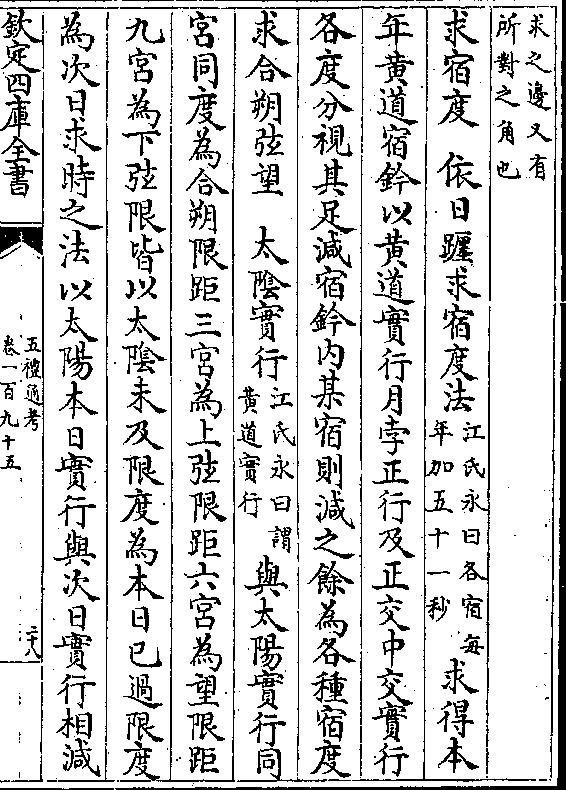 求之邊又有
所對之角也
求宿度　依日躔求宿度法江氏永曰各宿每年加五十一秒求得本
年黄道宿鈐以黄道實行月孛正行及正交中交實行
各度分視其足減宿鈐内某宿則減之餘為各種宿度
求合朔弦望　太陰實行江氏永曰謂黄道實行與太陽實行同
宮同度為合朔限距三宮為上弦限距六宮為望限距
九宮為下弦限皆以太陰未及限度為本日已過限度
為次日求時之法以太陽本日實行與次日實行相減
欽定四庫全書
五禮通考
卷一百九十五
二十八